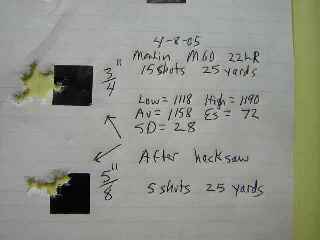 4-8-05
Marlin M60 22LR
3/4" 15 shots 25 yards
Low = 1118 High = 1190
Av = 1158 Es = 72
SD = 28
After hacksaw
5/8" 5 shots 25 yards